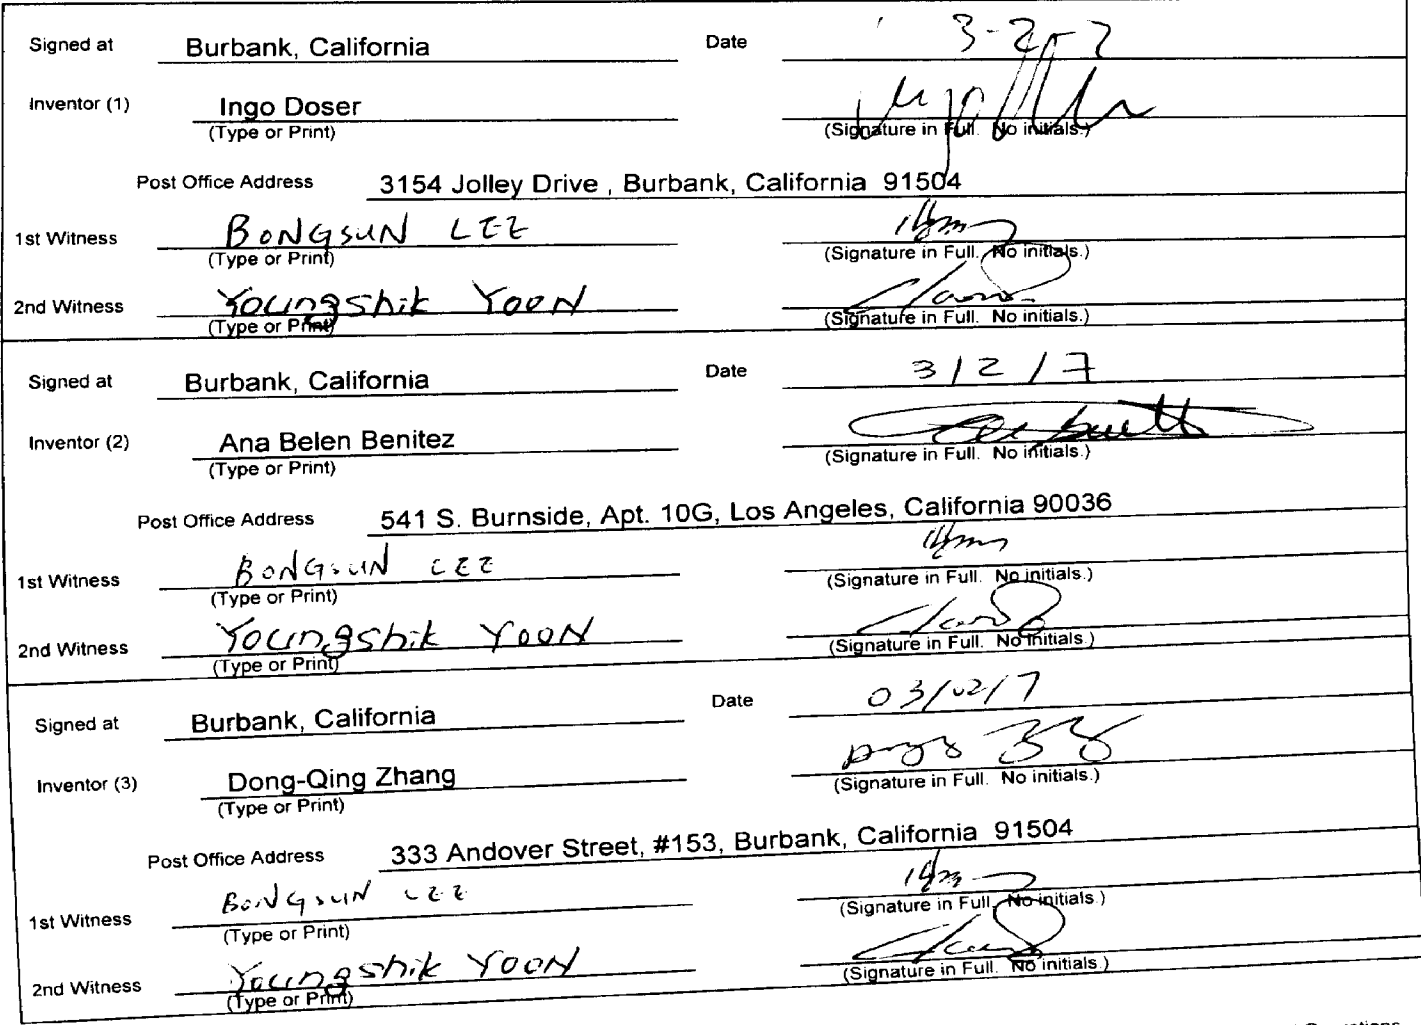 Signed at Burbank, California Date 3-2-7
Inventor (1) Ingo Doser
(Type or Print) (Signature in Full. No initials.)
Post Office Address 3154 Jolley Drive , Burbank, California 91504
1st Witness BONGSUN LEE
(Type or Print) (Signature in Full. No initials.)
2nd Witness Youngshik YOON
(Type or Print) (Signature in Full. No initials.)
Signed at Burbank, California Date 3/2/7
Inventor (2) Ana Belen Benitez
(Type or Print) (Signature in Full. No initials.)
Post Office Address 541 S. Burnside, Apt. 10G, Los Angeles, California 90036
1st Witness BONGSUN LEE
(Type or Print) (Signature in Full. No initials.)
2nd Witness Youngshik YOON
(Type or Print) (Signature in Full. No initials.)
Signed at Burbank, California Date 03/02/7
Inventor (3) Dong-Qing Zhang
(Type or Print) (Signature in Full. No initials.)
Post Office Address 333 Andover Street, #153, Burbank, California 91504
1st Witness BONGSUN LEE
(Type or Print) (Signature in Full. No initials.)
2nd Witness Youngshik YOON
(Type or Print) (Signature in Full. No initials.)